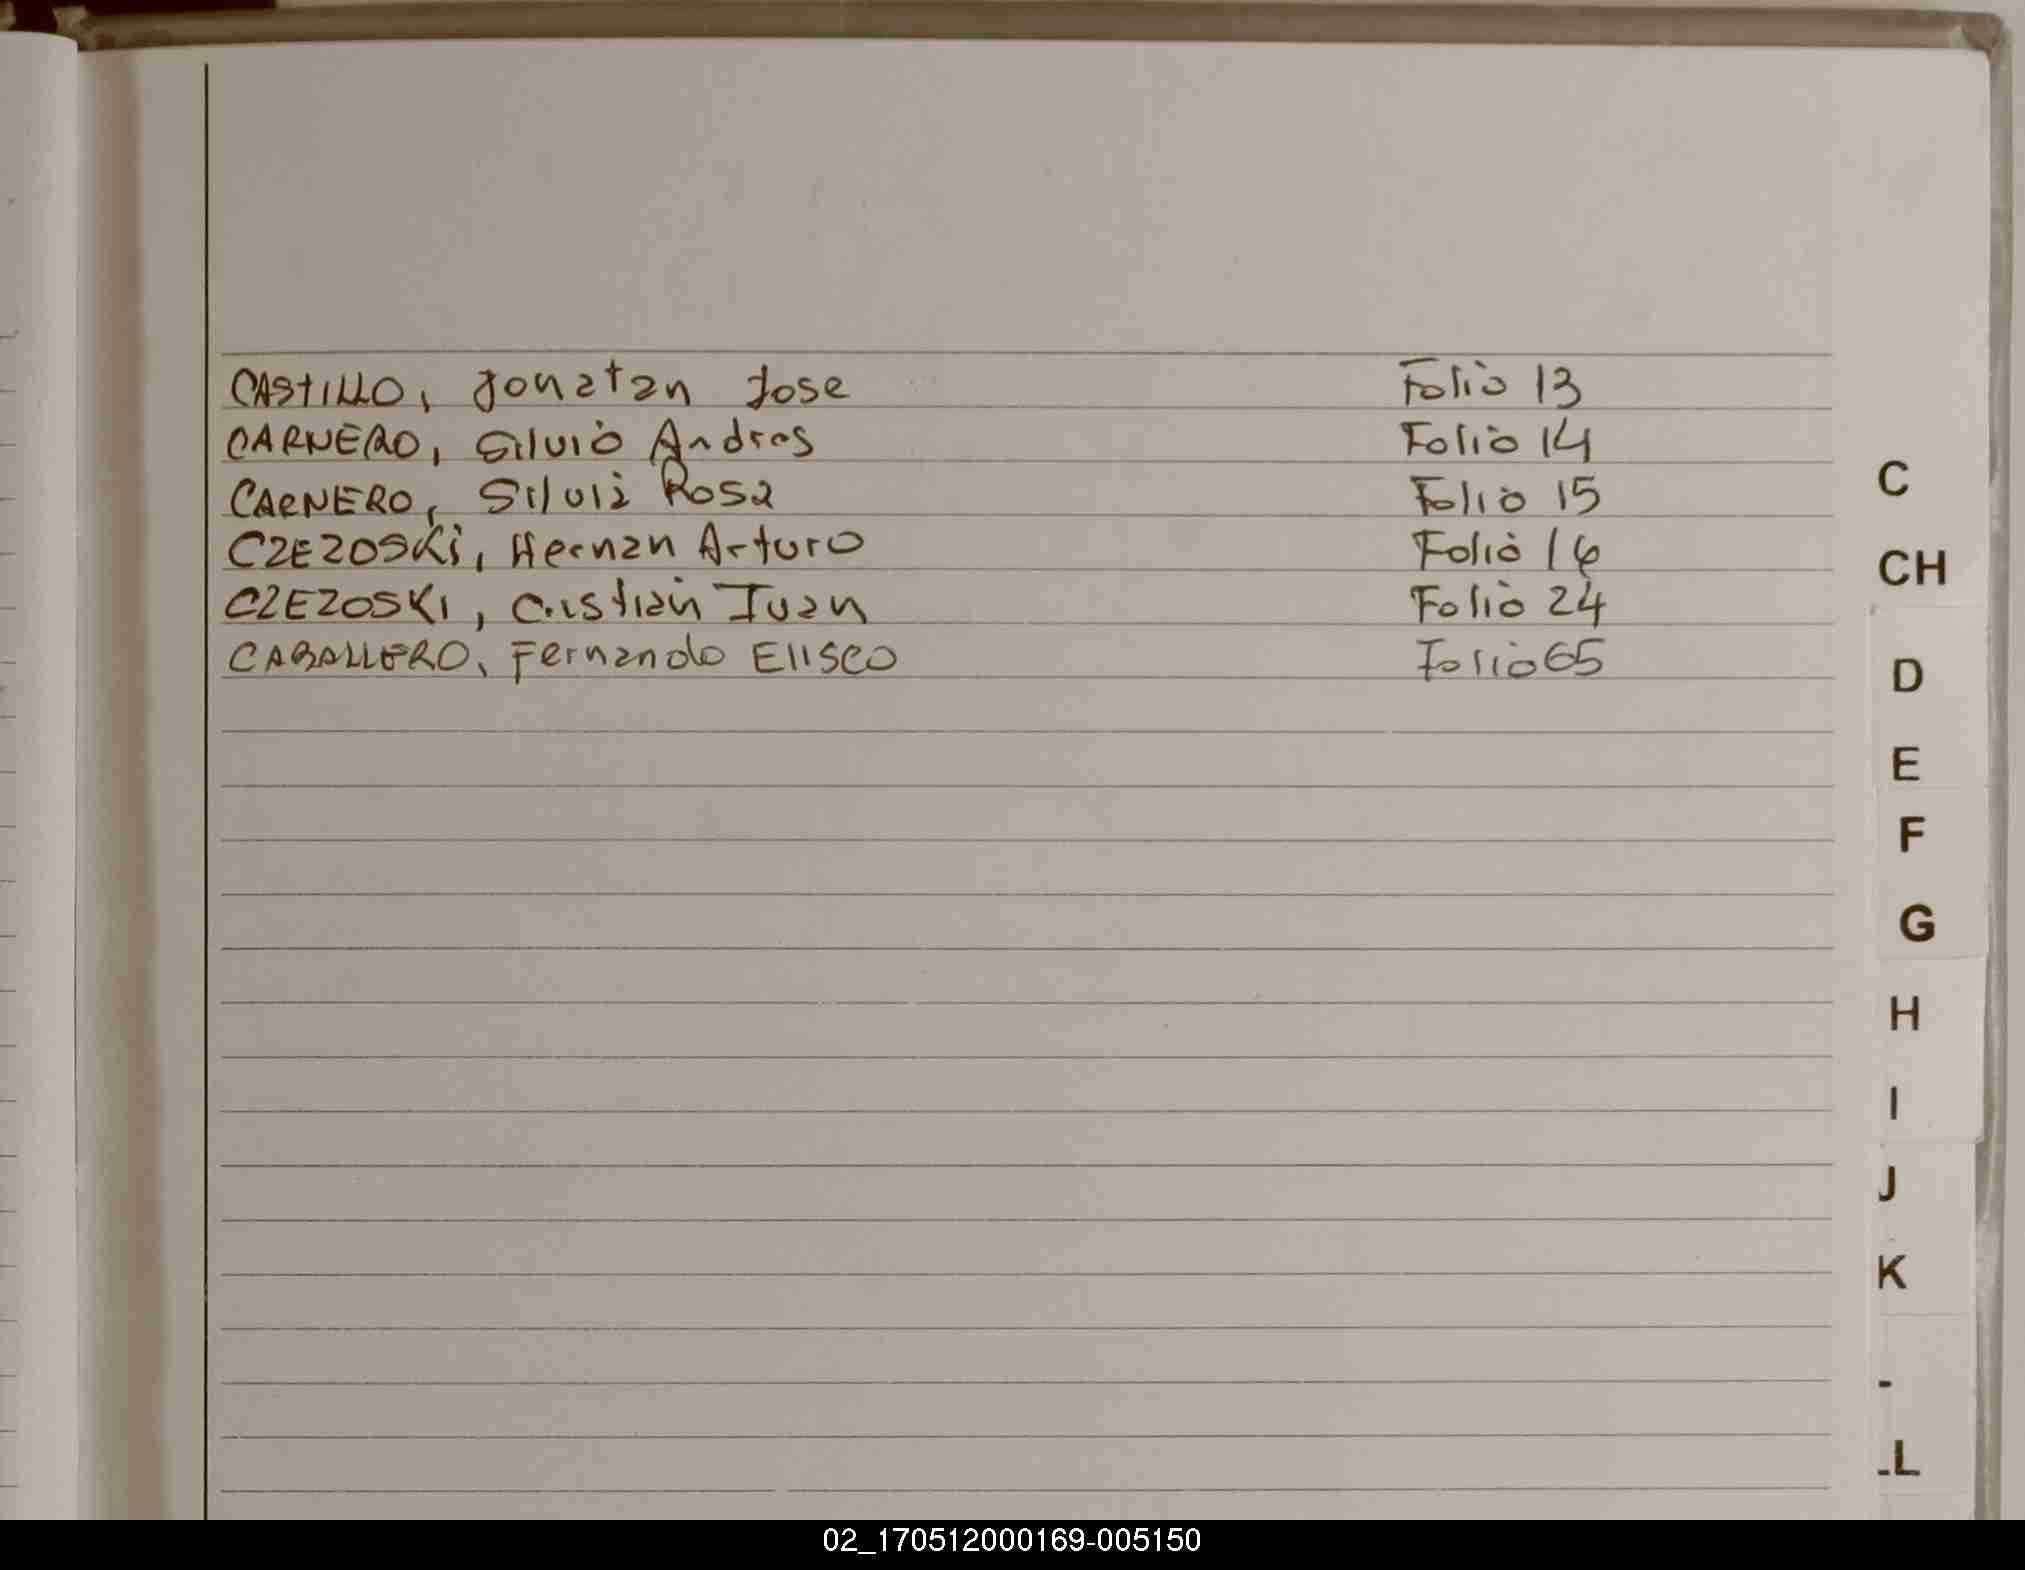 CASTILLO, Jonatan Jose Folio 13
CARNERO, Silvio Andres Folio 14
CARNERO, Silvia Rosa Folio 15
CZEZOSKi, Hernan Arturo Folio 16
CZEZOSKI, Cristian Iuan Folio 24
CABALLERO, Fernando Eliseo Folio 65
C
CH
D
E
F
G
H
I
J
K
-
-L
02_170512000169-005150